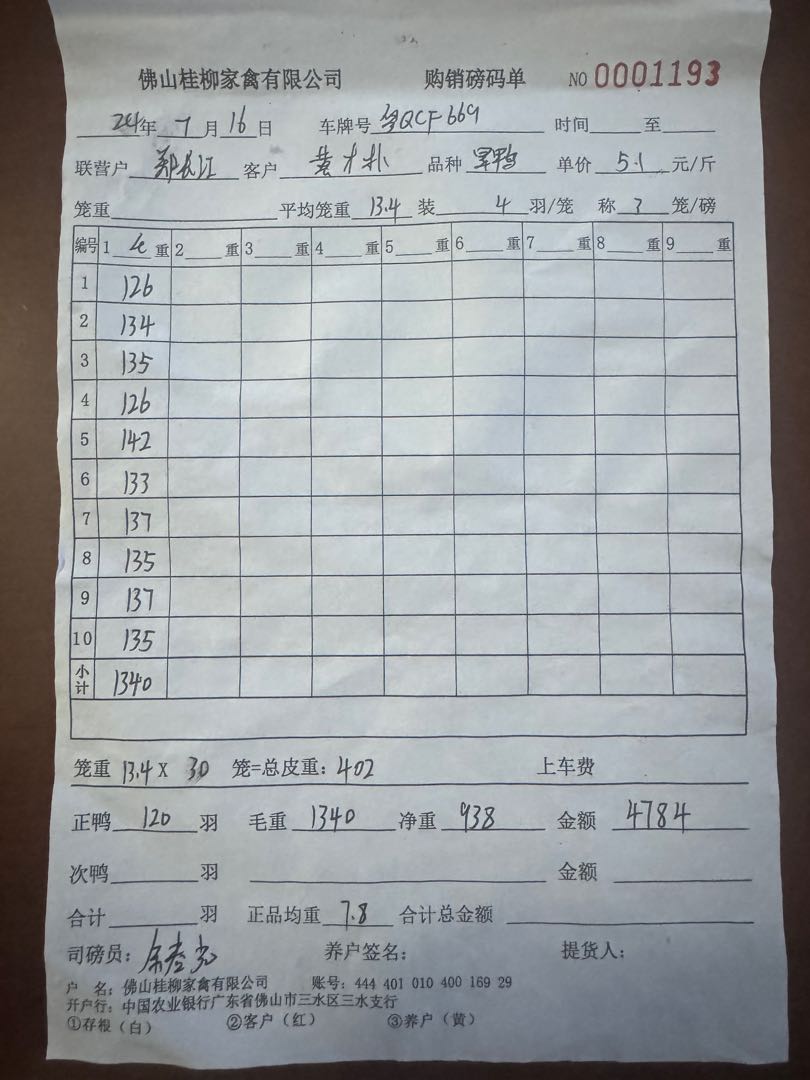 佛山桂柳家禽有限公司 购销磅码单 NO 0001193
24年 7 月 16 日 车牌号 粤QCF669 时间 至
联营户 郑长江 客户 黄才朴 品种 单价 5.1 元/斤
笼重 平均笼重 13.4 装 4 羽/笼 称 3 笼/磅
编号 1 重 2 重 3 重 4 重 5 重 6 重 7 重 8 重 9 重
1 126
2 134
3 135
4 126
5 142
6 133
7 137
8 135
9 137
10 135
小计 1340
笼重 13.4 X 30 笼=总皮重: 402 上车费
正鸭 120 羽 毛重 1340 净重 938 金额 4784
次鸭 羽 金额
合计 羽 正品均重 7.8 合计总金额
司磅员: 养户签名: 提货人:
户 名: 佛山桂柳家禽有限公司 账号: 444 401 010 400 169 29
开户行: 中国农业银行广东省佛山市三水区三水支行
①存根(白) ②客户(红) ③养户(黄)